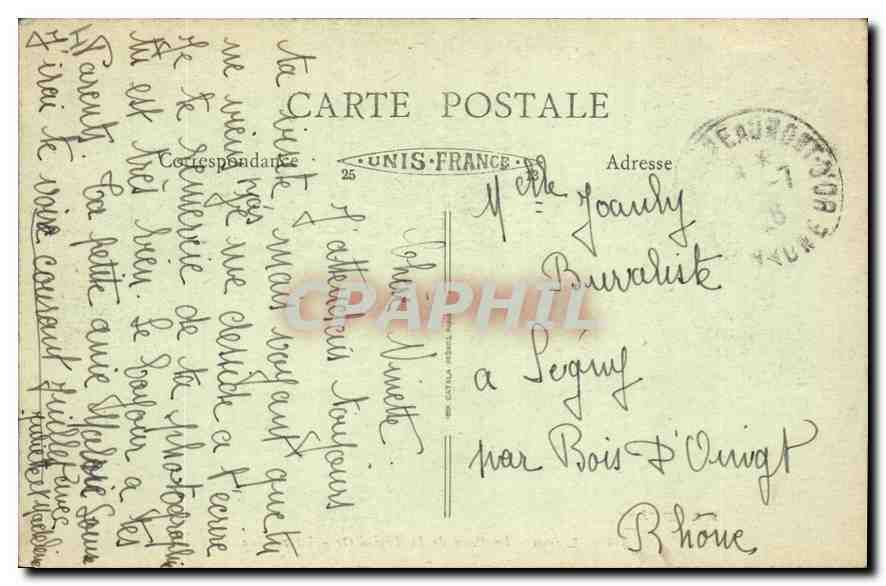 CARTE POSTALE
Correspondance
UNIS-FRANCE
25
Adresse
Chère Ninette
J'attendais toujours
ta visite, mais voyant que tu
ne viens pas je me décide a t'écrire
Je te remercie de ta photographie
tu est très bien. Le bonjour a tes
Parents. Ta petite amie
J'irai te voir courant Juillet avec
Juliette et Madeleine
Melle Joanhy
Buraliste
a Légny
par Bois D'Oingt
Rhône
BEAUMONT-S'OR
CAPHIL